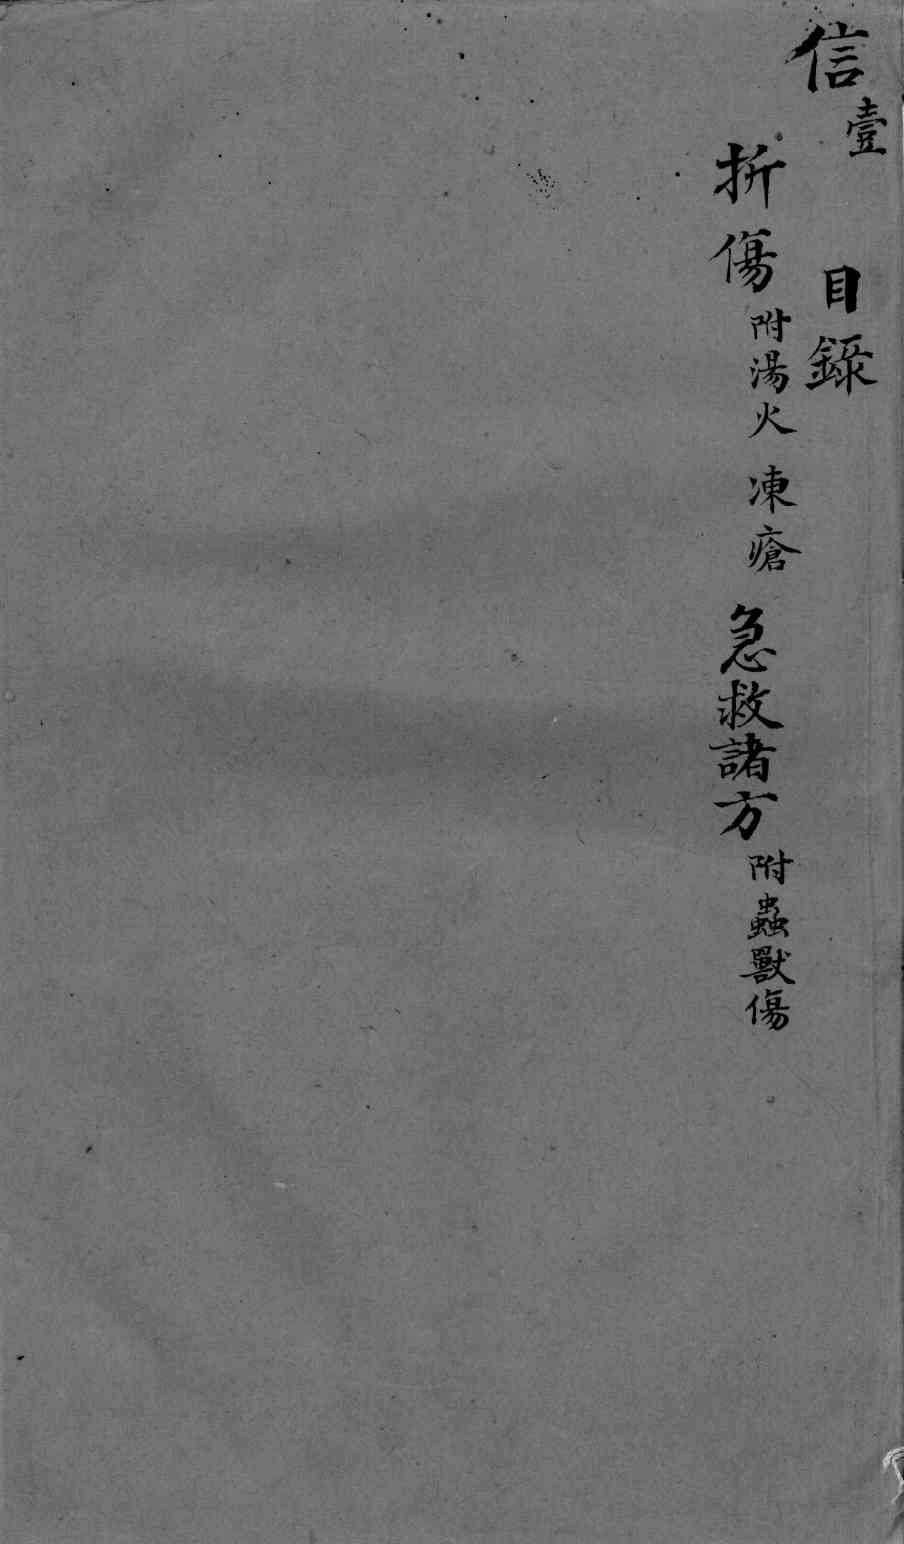 信壹 目錄
折傷 附湯火 凍瘡 急救諸方 附蟲獸傷